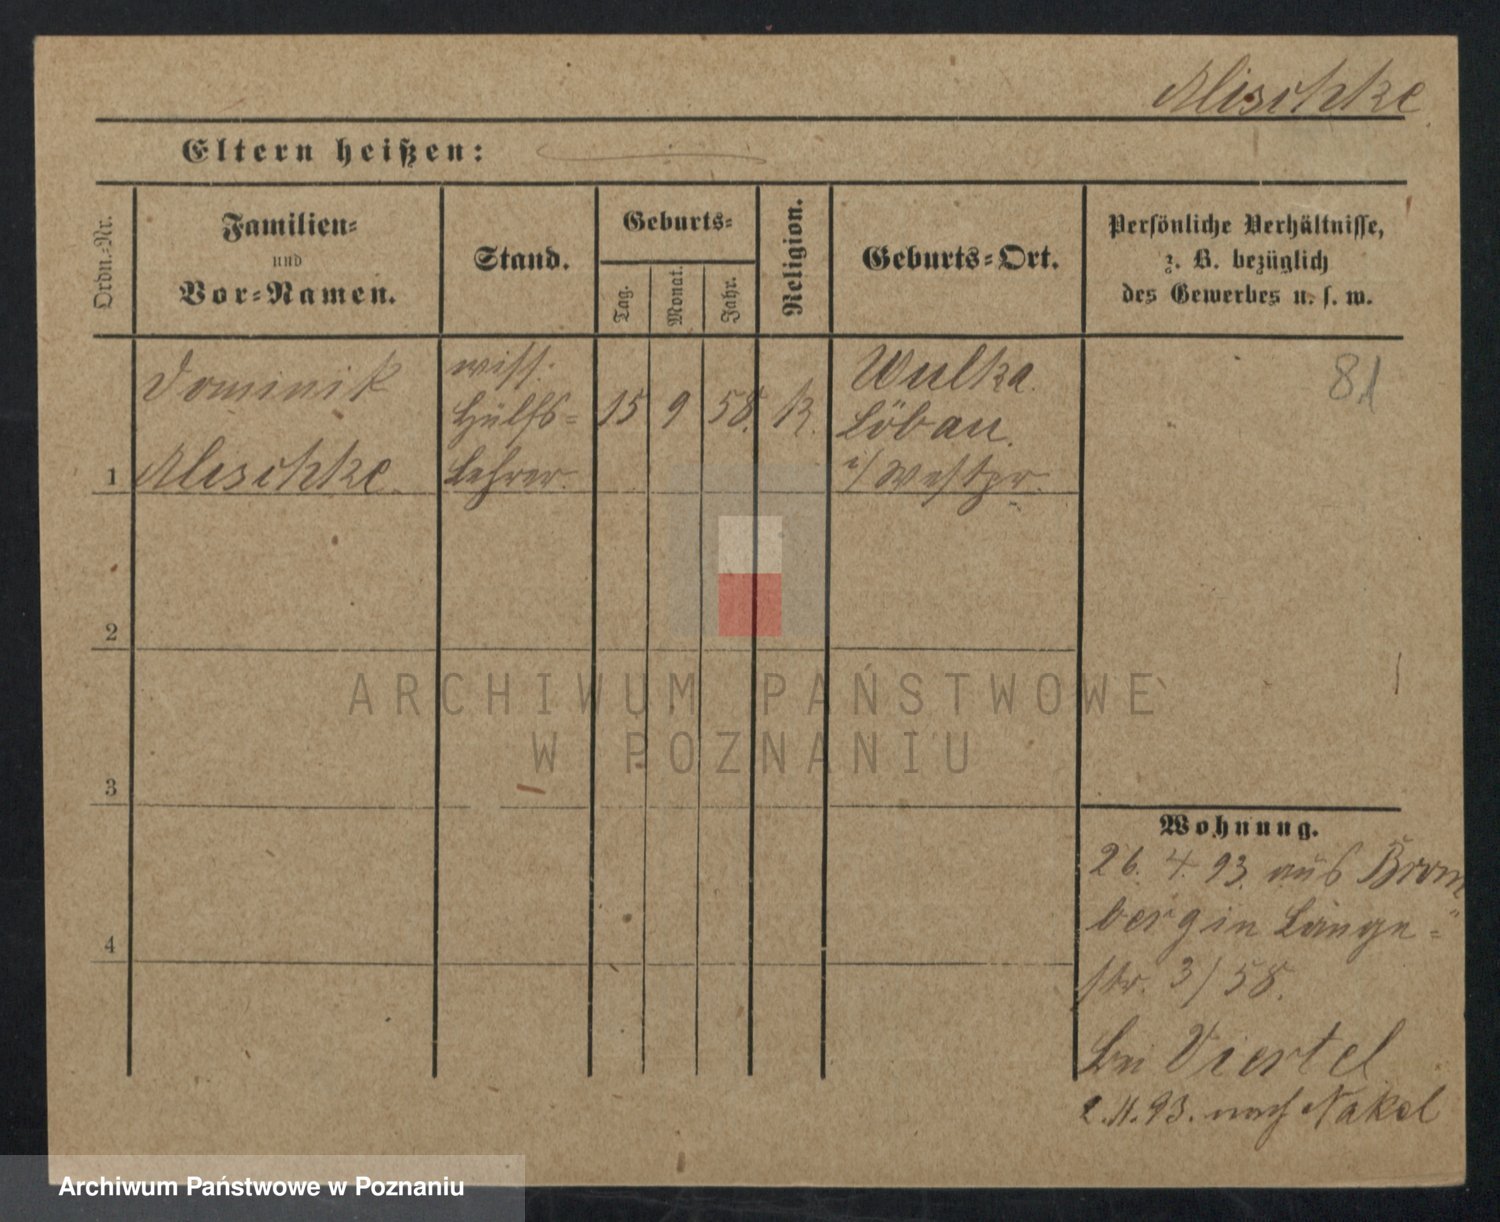 Mischke
Eltern heißen:
Ordn.-Nr.
Familien-
und
Vor-Namen.
Stand.
Geburts-
Tag.
Monat.
Jahr.
Religion.
Geburts-Ort.
Persönliche Verhältnisse,
z. B. bezüglich
des Gewerbes u. s. w.
1
Dominik
Mischke
wiss.
Hülfs-
Lehrer
15 9 58. K.
Wulka
Löbau.
i/ Westpr.
81
2
3
4
Wohnung.
26. 4. 93. aus Brom
berg in Lange-
str. 3/58.
bei Viertel
2.11.93. nach Nakel
ARCHIWUM PAŃSTWOWE
W POZNANIU
Archiwum Państwowe w Poznaniu